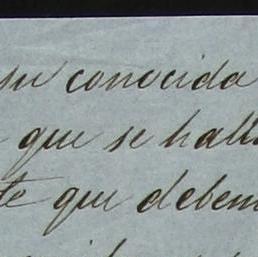 su conocida
que se hall
te que debem